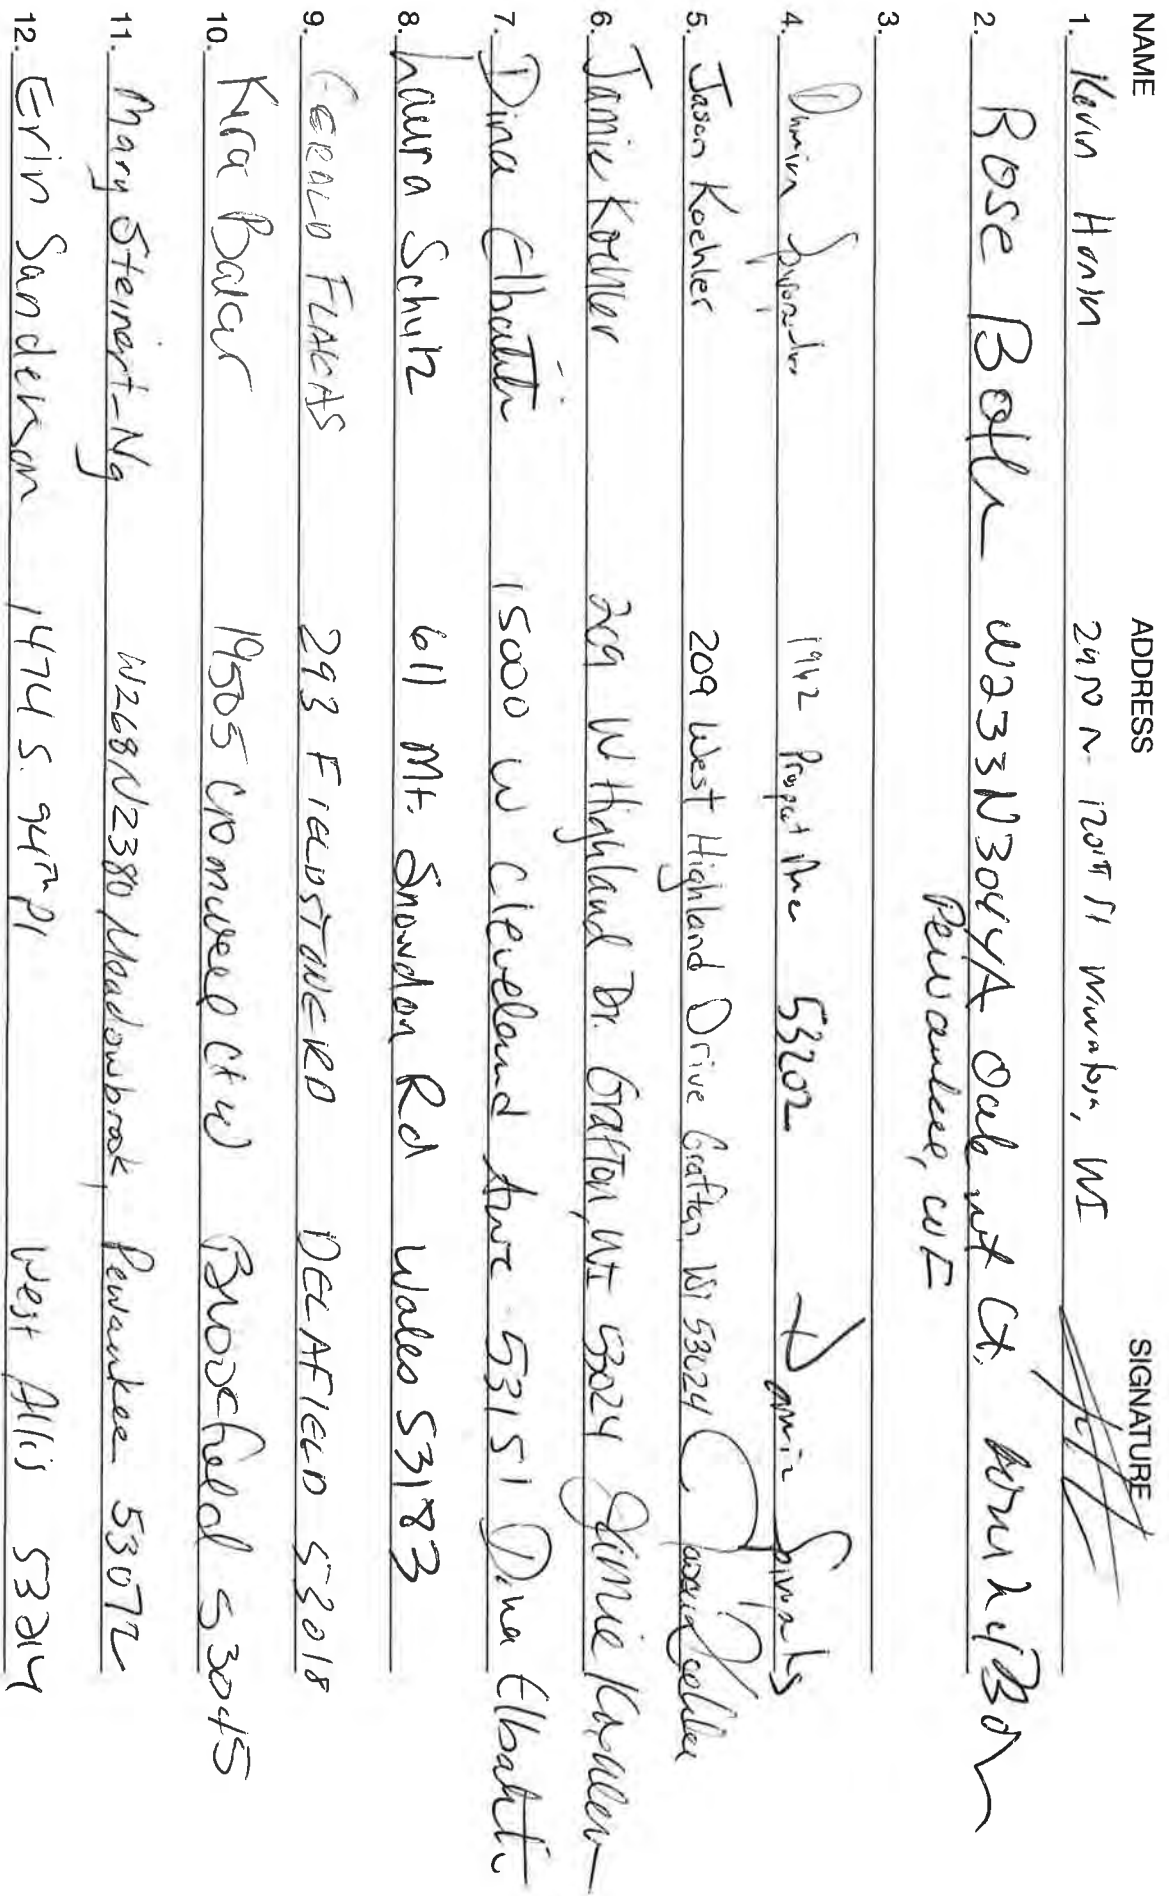 NAME ADDRESS SIGNATURE
1. Kevin 2410 N. WI
2. Rose W233N3044A Oak Ct.
Pewaukee, WI
3.
4. 1942 Prospect Ave 53202
5. Jason Koehler 209 West Highland Drive Grafton WI 53024
6. Jamie Koehler 209 W Highland Dr. Grafton, WI 53024 Jamie Koehler
7. Dina Elbatuti 15000 W Cleveland Ave 53151 Dina Elbatuti
8. Laura Schultz 611 Mt. Snowdon Rd Wales 53183
9. GERALD FLAKAS 293 FIELDSTONE RD DELAFIELD 53018
10. Kira 19505 Cromwell Ct W Brookfield 53045
11. Mary Steinert-Ng W268N2380 Meadowbrook, Pewaukee 53072
12. Erin Sanderson 1474 S. 94th Pl West Allis 53214